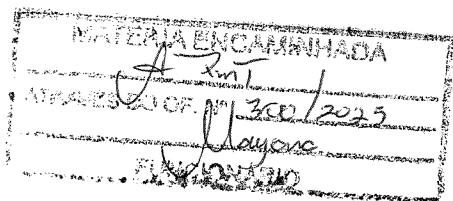 MATÉRIA ENCAMINHADA
A PMT
ATRAVÉS DO OF. Nº 300/2025
Mayana
FUNCIONÁRIO